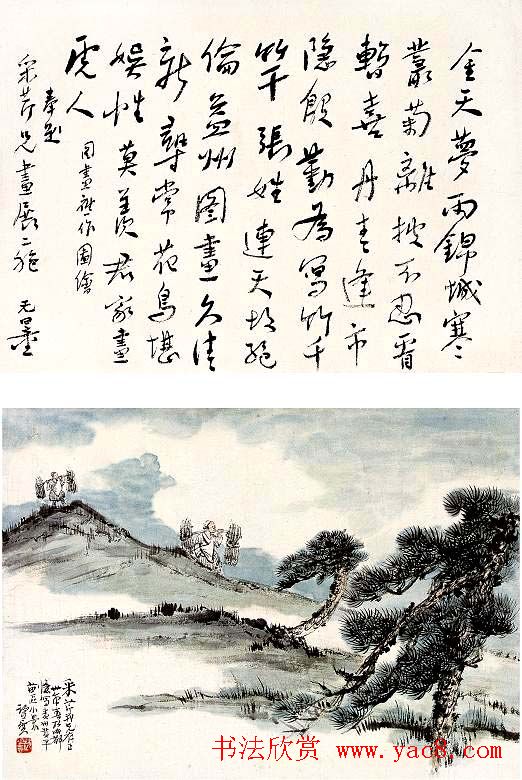 金天夢雨錦城寒
叢菊離披不忍看
暫喜丹青逢市
隱殷勤為寫竹千
竿張姓連天絕
倫益州圖畫久清
新尋常花鳥堪
娛性莫羨君家畫
虎人
同畫社作圖繪
奉題
采芹兄畫展二絕 无量
书法欣赏
www.yac8.com